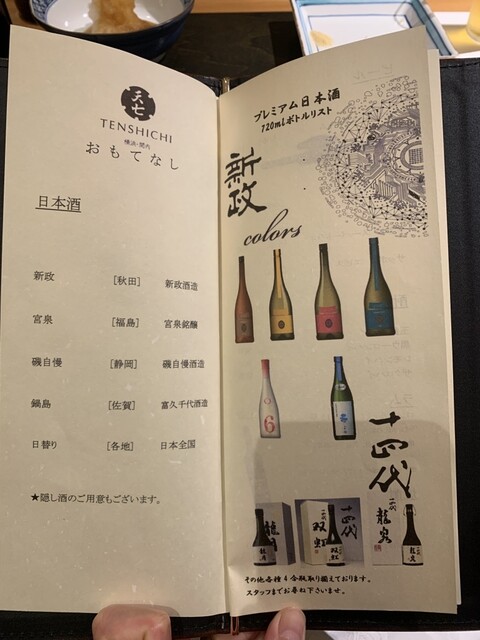 天七
TENSHICHI
横浜・関内
おもてなし
日本酒
新政 [秋田] 新政酒造
宮泉 [福島] 宮泉銘醸
磯自慢 [静岡] 磯自慢酒造
鍋島 [佐賀] 富久千代酒造
日替り [各地] 日本全国
★隠し酒のご用意もございます。
プレミアム日本酒
720mlボトルリスト
新政
colors
6
十四代
龍月
龍月
双虹
十四代
双虹
龍泉
その他各種4合瓶取り揃えております。
スタッフまでお尋ね下さいませ。